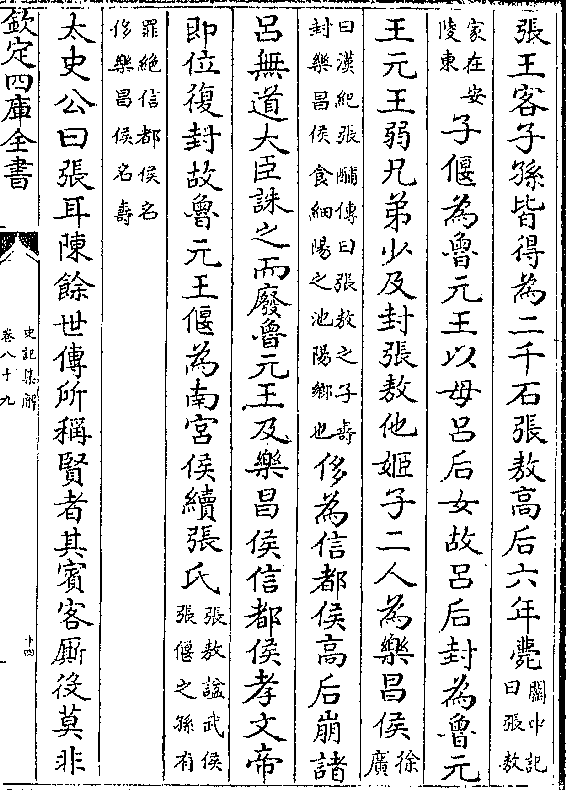 張王客子孫皆得為二千石張敖高后六年薨關中記曰張敖
冢在安陵東子偃為魯元王以母呂后女故呂后封為魯元
王元王弱兄弟少及封張敖他姬子二人為樂昌侯徐廣
曰漢紀張酺傳曰張敖之子壽封樂昌侯食細陽之池陽鄉也侈為信都侯高后崩諸
呂無道大臣誅之而廢魯元王及樂昌侯信都侯孝文帝
即位復封故魯元王偃為南宮侯續張氏張敖諡武侯張偃之孫有
罪絕信都侯名侈樂昌侯名壽
太史公曰張耳陳餘世傳所稱賢者其賓客厮役莫非
欽定四庫全書
史記集解
卷八十九
十四